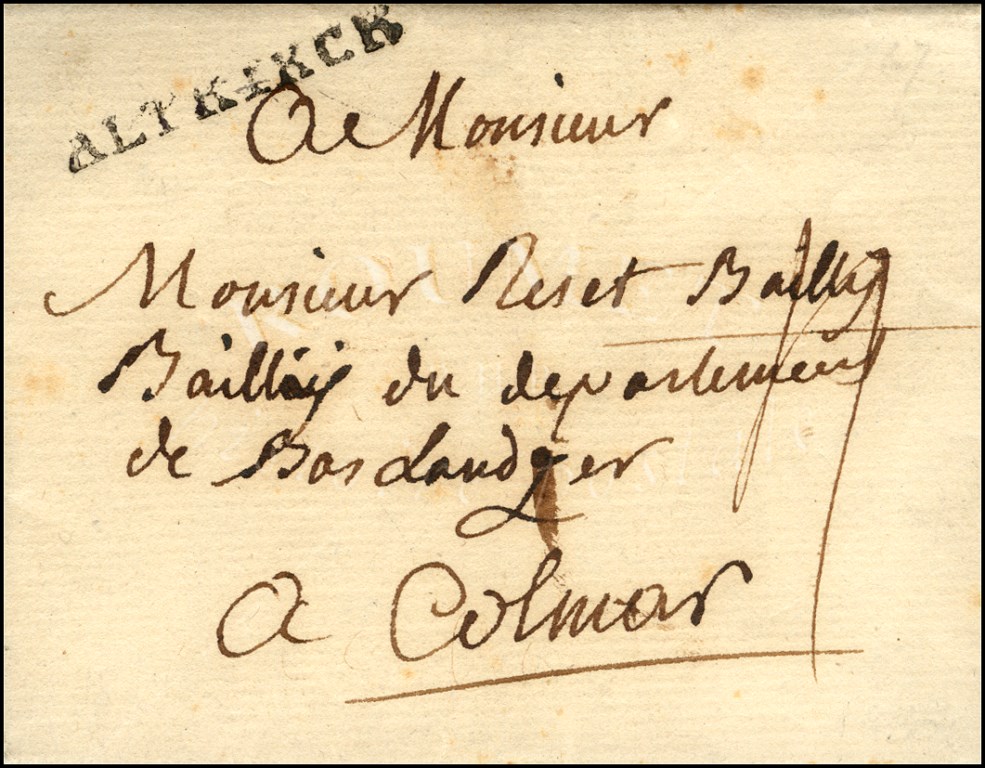 ALTKIRCK
A Monsieur
Monsieur Reset Bailly
Bailly du departement
de Bas Landser
A Colmar